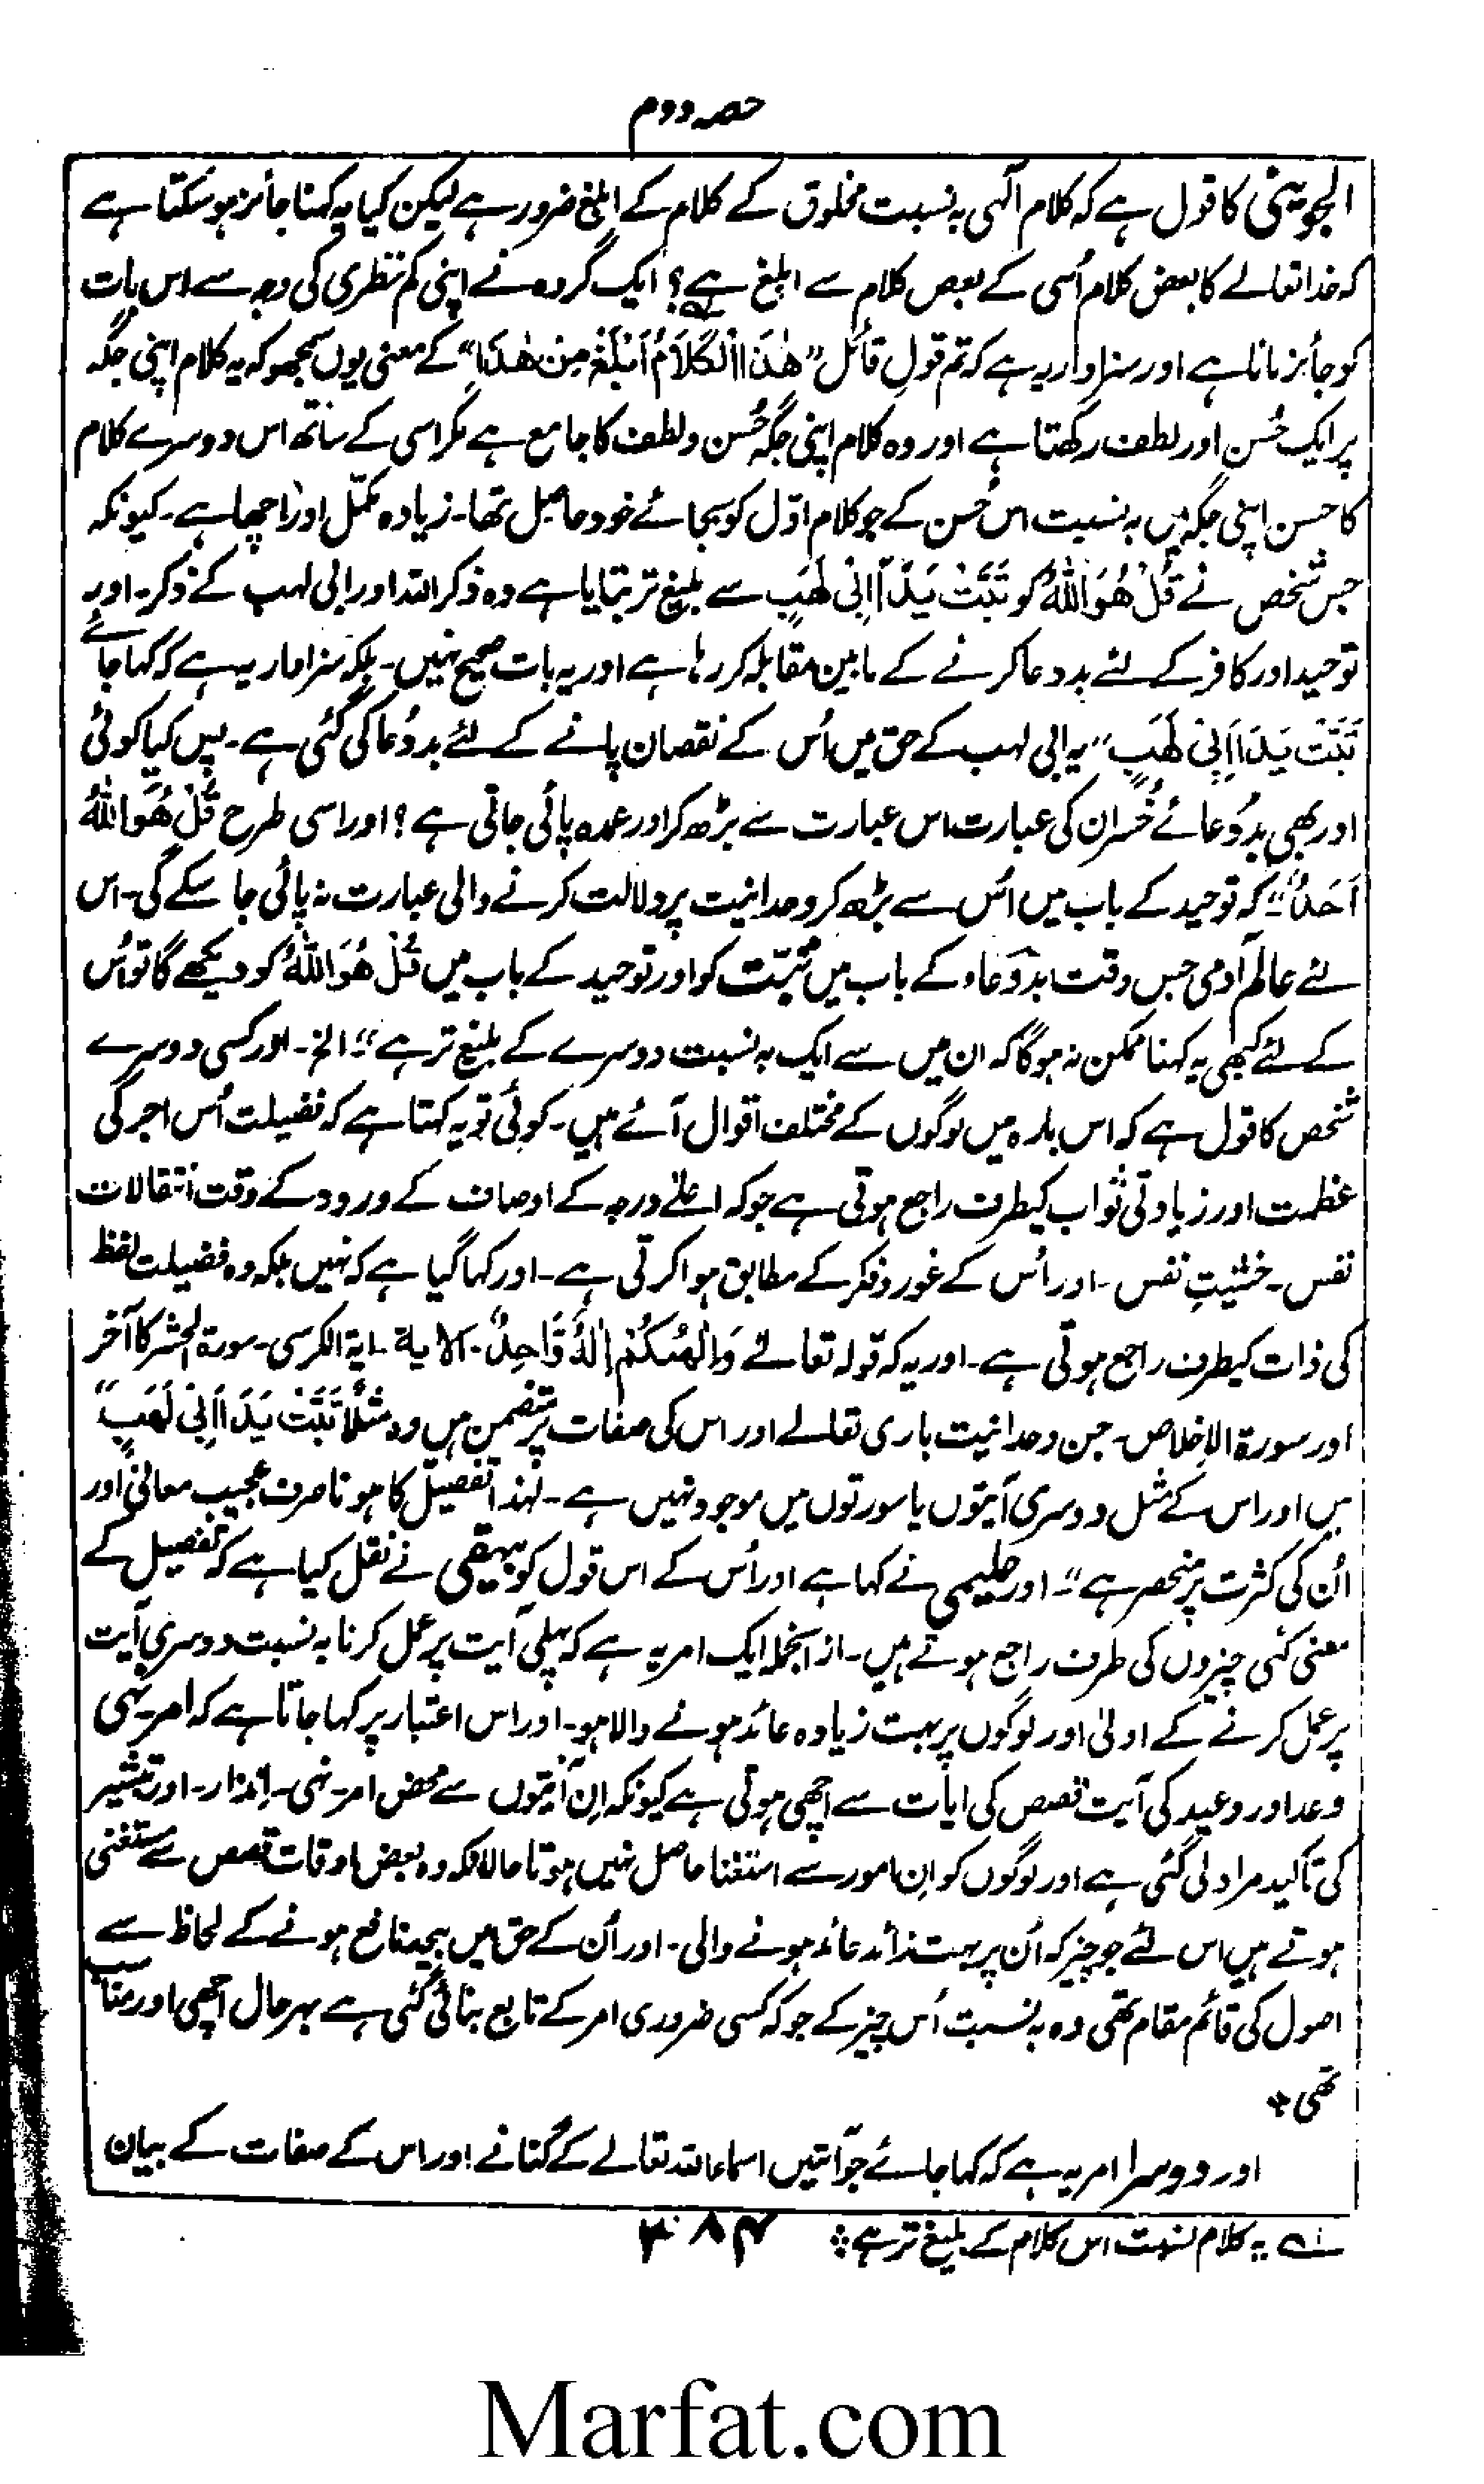 حصہ دوم
الجوینیؒ کا قول ہے کہ کلام الٰہی بہ نسبت مخلوق کے کلام کے ابلغ ضرور ہے لیکن کیا یہ کہنا جائز ہو سکتا ہے
کہ خدا تعالے کا بعض کلام اُسی کے بعض کلام سے ابلغ ہے؟ ایک گروہ نے اپنی کم نظری کی وجہ سے اس بات
کو جائز مانا ہے اور سزاوار یہ ہے کہ تم قولِ قائل ”هٰذَا الْكَلَامُ اَبْلَغُ مِنْ هٰذَا“ کے معنی یوں سمجھو کہ یہ کلام اپنی جگہ
پر ایک حُسن اور لطف رکھتا ہے اور وہ کلام اپنی جگہ حُسن و لطف کا جامع ہے مگر اسی کے ساتھ اس دوسرے کلام
کا حسن اپنی جگہ میں بہ نسبت اس حُسن کے جو کلام اوّل کو بجائے خود حاصل تھا۔ زیادہ مکمّل اور اچھا ہے۔ کیونکہ
جس شخص نے قُلْ هُوَ اللّٰهُ کو تَبَّتْ يَدَآ اَبِيْ لَهَبٍ سے بلیغ تر بتایا ہے وہ ذکر اللہ اور ابی لہب کے ذکر۔ اور
توحید اور کافر کے لئے بد دعا کرنے کے مابین مقابلہ کر رہا ہے اور یہ بات صحیح نہیں۔ بلکہ سزاوار یہ ہے کہ کہا جائے
تَبَّتْ يَدَآ اَبِيْ لَهَبٍ“ یہ ابی لہب کے حق میں اُس کے نقصان پانے کے لئے بد دُعا کی گئی ہے۔ پس کیا کوئی
اور بھی بد دُعائے خُسران کی عبارت اس عبارت سے بڑھ کر اور عمدہ پائی جاتی ہے؟ اور اسی طرح قُلْ هُوَ اللّٰهُ
اَحَدٌ“ کہ توحید کے باب میں اس سے بڑھ کر وحدانیت پر دلالت کرنے والی عبارت نہ پائی جا سکے گی۔ اس
لئے عالم آدمی جس وقت بد دُعاء کے باب میں تَبَّتْ کو اور توحید کے باب میں قُلْ هُوَ اللّٰهُ کو دیکھے گا تو اُس
کے لئے کبھی یہ کہنا ممکن نہ ہوگا کہ ان میں سے ایک بہ نسبت دوسرے کے بلیغ تر ہے“ الخ۔ اور کسی دوسرے
شخص کا قول ہے کہ اس بارہ میں لوگوں کے مختلف اقوال آئے ہیں۔ کوئی تو یہ کہتا ہے کہ فضیلت اُس اجر کی
عظمت اور زیادتی ثواب کیطرف راجع ہوتی ہے جو کہ اعلےٰ درجہ کے اوصاف کے ورود کے وقت انتقالات
نفس۔ خشیتِ نفس۔ اور اُس کے غور و فکر کے مطابق ہوا کرتی ہے۔ اور کہا گیا ہے کہ نہیں بلکہ وہ فضیلت لفظ
کی ذات کیطرف راجع ہوتی ہے۔ اور یہ کہ قولہ تعالے وَاِلٰهُكُمْ اِلٰهٌ وَّاحِدٌ۔ الایة۔ اٰیة الکرسی۔ سورة الحشر کا آخر
اور سورة الاِخلاص۔ جن وحدانیت باری تعالے اور اس کی صفات پر متضمن ہیں وہ مثلًا تَبَّتْ يَدَآ اَبِيْ لَهَبٍ“
میں اور اس کے مثل دوسری آیتوں یا سورتوں میں موجود نہیں ہے۔ لہٰذا تفضیل کا ہونا صرف عجیب معانی اور
اُن کی کثرت پر منحصر ہے“۔ اور حلیمی نے کہا ہے اور اُس کے اس قول کو بیہقی نے نقل کیا ہے کہ تفضیل کے
معنی کئی چیزوں کی طرف راجع ہوتے ہیں۔ از انجملہ ایک امر یہ ہے کہ پہلی آیت پر عمل کرنا بہ نسبت دوسری آیت
پر عمل کرنے کے اولیٰ اور لوگوں پر بہت زیادہ عائد ہونے والا ہو۔ اور اس اعتبار پر کہا جاتا ہے کہ امر۔ نہی
وعد اور وعید کی آیت قصص کی آیات سے اچھی ہوتی ہے کیونکہ اِن آیتوں سے محض امر۔ نہی۔ اِنذار۔ اور تبشیر
کی تاکید مراد لی گئی ہے اور لوگوں کو اِن امور سے استغنا حاصل نہیں ہوتا حالانکہ وہ بعض اوقات قصص سے مستغنی
ہوتے ہیں اس لئے جو چیز کہ اُن پر بہت زائد عائد ہونے والی۔ اور اُن کے حق میں بیحد نافع ہونے کے لحاظ سے
اصول کی قائم مقام تھی وہ بہ نسبت اُس چیز کے جو کہ کسی ضروری امر کے تابع بنائی گئی ہے بہر حال اچھی اور مناسب
تھی ٭
اور دوسرا امر یہ ہے کہ کہا جائے جو آیتیں اسماء اللہ تعالے کے گنانے اور اس کے صفات کے بیان
لہ یہ کلام نسبت اس کلام کے بلیغ تر ہے ؞
۴۸۴
Marfat.com